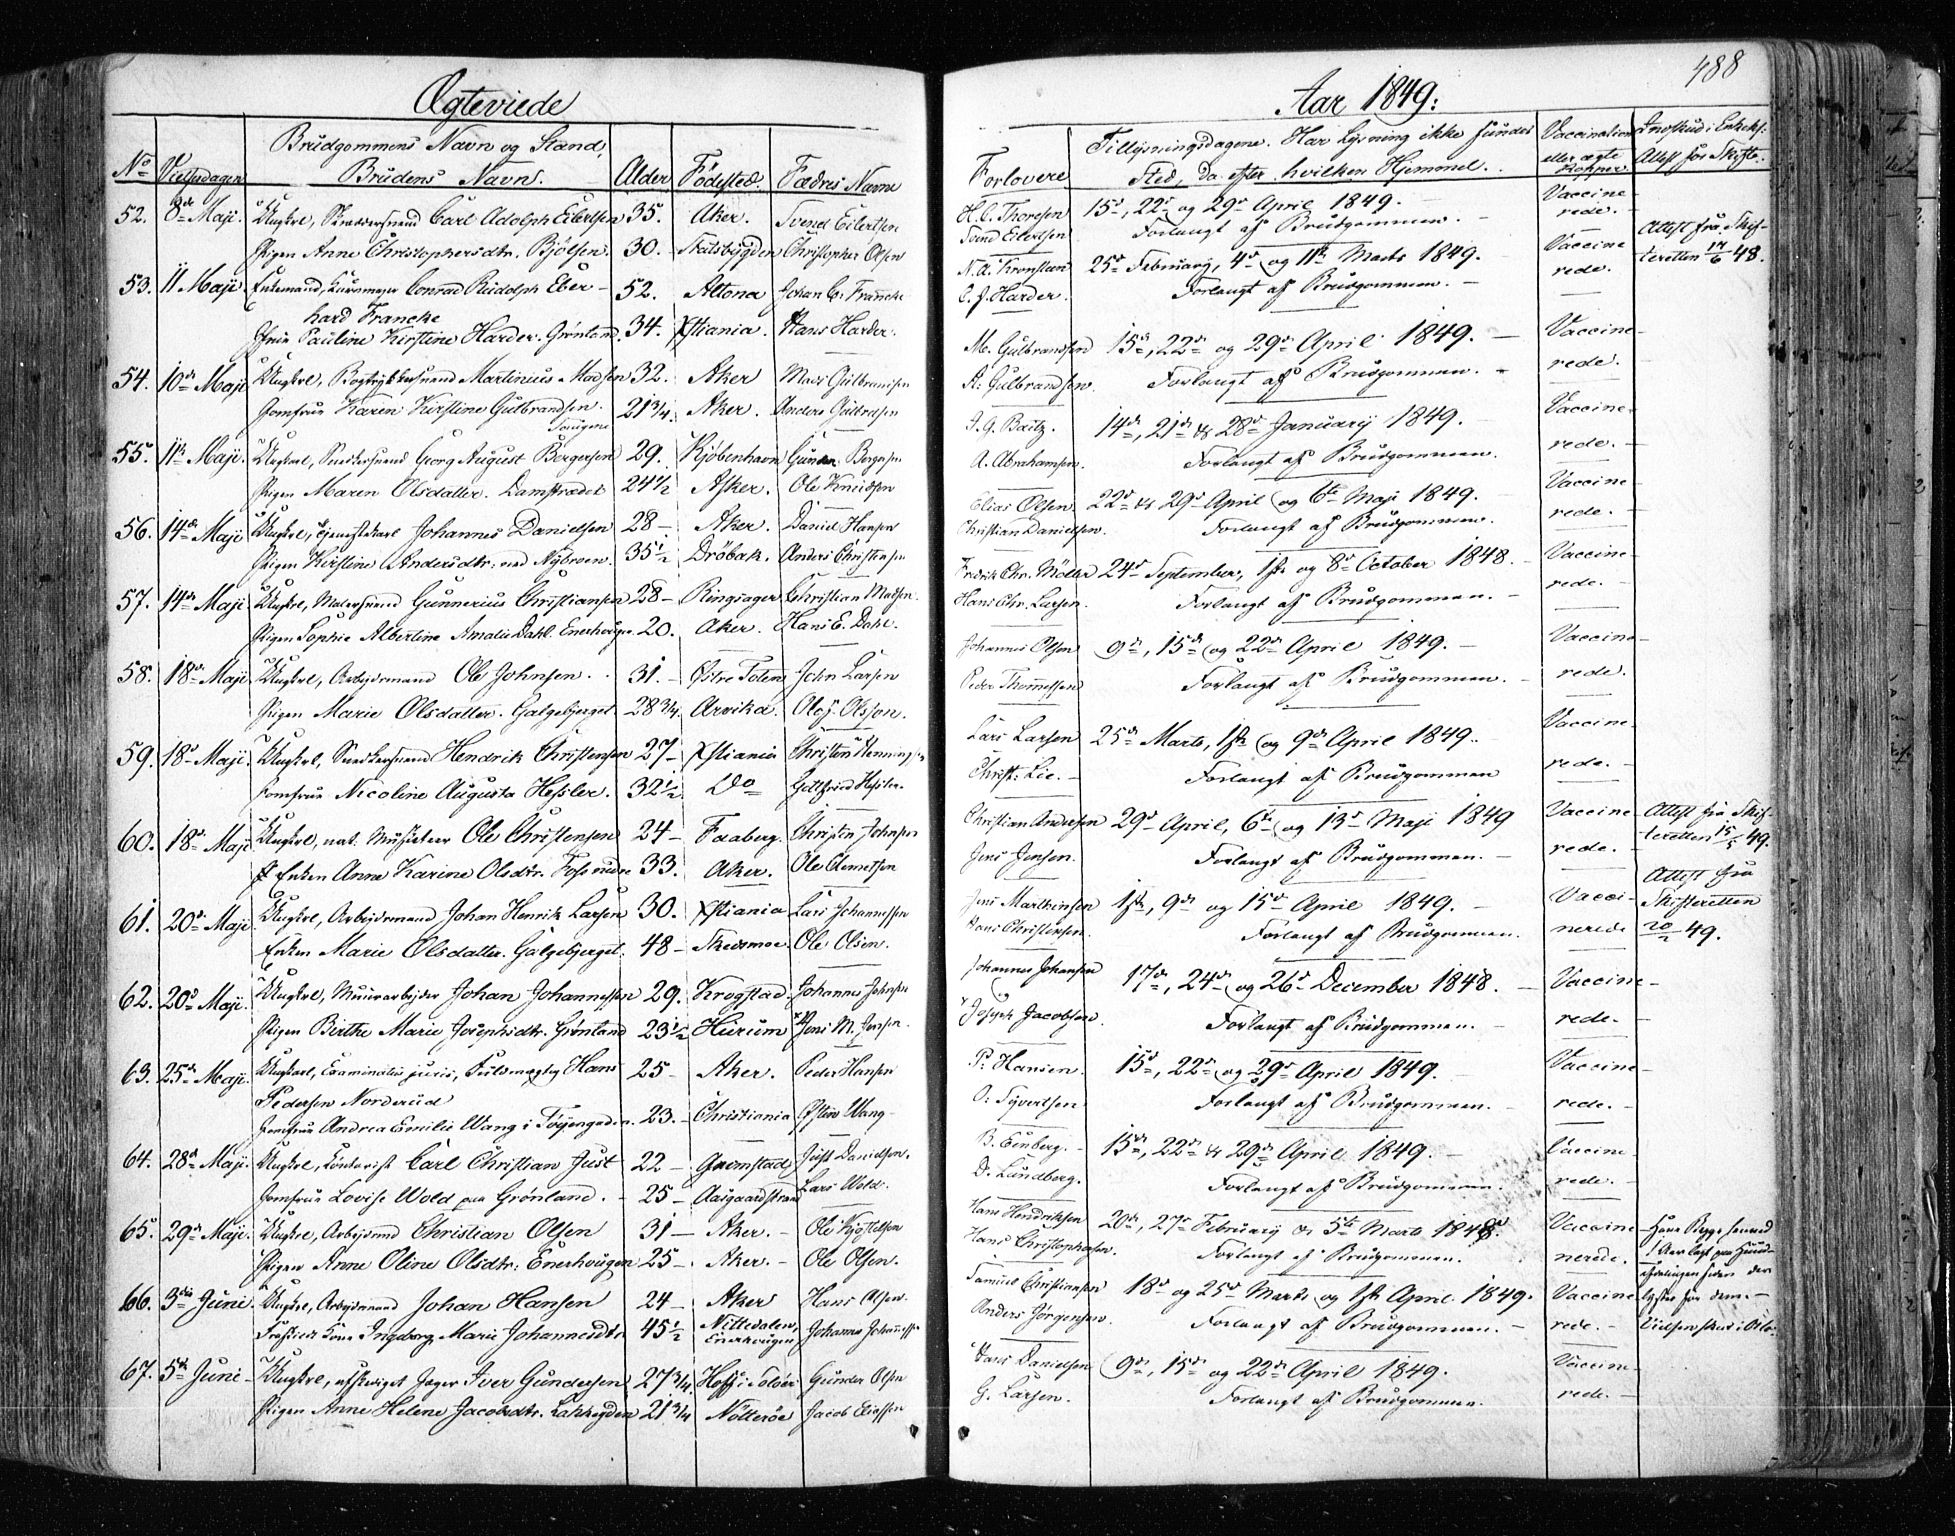 488
Ægteviede
Aar 1849:
No Vielsesdagen Brudgommens Navn og Stand, Brudens Navn. Alder Fødested. Fædres Navne
Forlovere Tillysningsdagene. Har Lysning ikke fundet Sted, da efter hvilken Hjemmel. Vaccination eller ægte Kopper
52. 8de Maji. Ungkarl, Carl Adolph Eilertsen 35. Aker. Svend Eilertsen
Pigen Anne Christophersdtr. Bjölsen. 30. Christopher Olsen
53. 11 Maji Enkemand, Conrad Rudolph Eber- 52. Altona Johan C. Francke
hard Francke
Pauline Kirstine Harder. Grønland. 34. Xstiania. Hans Harder.
54. 10de Maji Ungkarl, Martinius Madsen 32. Aker Mads Gulbrandsen
Jomfrue Karen Kirstine Gulbrandsen. 21 3/4 Aker. Anders Gulbrandsen
55. 11te Maji. Ungkarl, Georg August Börgersen 29. Kjöbenhavn
Pigen Maren Olsdatter. 24 1/2 Asker. Ole Knudsen
56. 14de Maji Ungkarl, Johannes Danielsen 28- Aker. Daniel Hansen
Pigen Kirstine Andersdtr. ved Nybroen. 35 1/2 Dröbak. Anders Christensen
57. 14de Maji Ungkarl, Gunnerius Christiansen 28- Ringsager Christian Madsen.
Pigen Sophie Albertine Amalie Dahl. Enerhougen 20. Aker. Hans E. Dahl.
58. 18de Maji Ungkarl, Arbejdsmand Ole Johnsen. 31.- Östre Toten John Larsen
Pigen Marie Olsdatter. Galgebjerget 28 3/4. Arvika. Oloj Olsson.
59. 18de Maji. Ungkarl, Hendrik Christensen 27- Xstiania Christen
Jomfrue Nicoline Augusta Hessler. 32 1/2 Do Gottfried Hessler.
60. 18de Maji Ungkarl, nat. Musketeer Ole Christensen 24- Faaberg. Christen Johnsen
Enken Anne Karine Olsdtr. 33. Aker. Ole Clemetsen
61. 20de Maji Ungkarl, Arbejdsmand Johan Henrik Larsen 30. Xstiania Lars Johannessen
Enken Marie Olsdatter. Galgebjerget. 48- Skedsmoe Ole Olsen.
62. 20de Maji. Ungkarl, Muurarbejder Johan Johannessen 29. Krogstad. Johannes Johnsen
Pigen Birthe Marie Josephsdtr. Grønland 23 1/2 Hurum
63. 25de Maji. Ungkarl, Examinatus juris, Fuldmægtig Hans 25- Aker. Peder Hansen
Pedersen Norderud
Jomfrue Andrea Emilie Wang i Töyengaden. 23.- Christiania Wang-
64. 28de Maji. Ungkarl, Contorist Carl Christian Just 22- Grimstad Just Danielsen.
Jomfrue Lovise Wold paa Grönland. 25- Aasgaardstrand Lars Wold.
65. 29de Maji. Ungkarl, Arbejdsmd Christian Olsen 31- Aker. -
Pigen Anne Oline Olsdtr: Enerhougen 25- Aker. - Ole Olsen.
66. 3die Juni Ungkarl, Arbejdsmand Johan Hansen 24- Aker Hans Olsen.
Fraskilt Kone Ingeborg Marie Johannesdtr 45 1/2 Nittedalen, Enerhougen Johannes
67. 5te Juni- Ungkarl, afskediget Jæger Iver Gundersen 27 3/4 Hoff i Soloer Gunder Olsen
Pigen Anne Helene Jacobsdtr. Lakkegaden 21 3/4 Nötteröe Jacob
H. C. Thoresen 15de, 22de og 29de April 1849. Vaccine-
Svend Eilertsen Forlangt af Brudgommen. - rede.
25de Februarij, 4de og 11te Marts 1849. Vaccine Attest fra Skif-
C. J. Harder. Forlangt af Brudgommen. - rede. teretten 17/6 48.
M. Gulbrandsen 15de, 22de og 29de April 1849. Vaccine-
A. Gulbrandsen Forlangt af Brudgommen. rede.
14de, 21de & 28de Januarij 1849. Vaccine-
A. Abrahamsen. Forlangt af Brudgommen. rede.
Elias Olsen 22de & 29de April og 6te Maji 1849. Vaccine-
Christian Danielsen. Forlangt af Brudgommen. rede.
Fredrik Chr. Möller 24de September, 1ste og 8de October 1848. Vaccine-
Hans Chr. Larsen. Forlangt af Brudgommen. - rede.
Johannes Olsen 9de, 15de og 22de April 1849. Vaccine-
Peder Thomessen Forlangt af Brudgommen. rede.
Lars Larsen 25de Marts, 1ste og 9de April 1849. Vaccine-
Christ: Lie. - Forlangt af Brudgommen rede.
Christian Andresen 29de April, 6te og 13de Maji 1849 Vaccine- Attest fra Skif-
Jens Jensen. Forlangt af Brudgommen. - rede. teretten 15/5 49.
Jens Marthinsen 1ste, 9de og 15de April 1849. Vacci- Attest fra Skifteretten
Hans Christensen. Forlangt af Brudgommen. nerede 20/2 49.
Johannes Johansen 17de, 24de og 26de December 1848. Vaccine-
Joseph Jacobsen. Forlangt af Brudgommen. rede.
P. Hansen. 15de, 22de og 29de April 1849. Vaccine
O. Syvertsen Forlangt af Brudgommen. rede.
B. Eenberg. 15de, 22de & 29de April 1849. Vaccine-
D. Lundberg. Forlangt af Brudgommen. rede.
Hans Hendriksen 20de, 27de Februarij & 5te Marts 1848. Vaccine-
Hans Christophersen. Forlangt af Brudgommen. nerede.
Samuel Christiansen 18de og 25de Marts og 1ste April 1849. Vaccine
Anders Jörgensen. Forlangt af Brudgommen. - rede.
Hans Danielsen 9de, 15de og 22de April 1849. Vaccine-
G. Larsen. Forlangt af Brudgommen. rede.